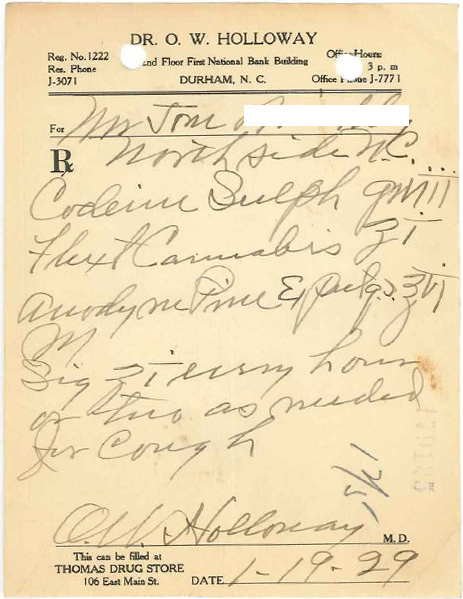 DR. O. W. HOLLOWAY
Reg. No. 1222 2nd Floor First National Bank Building Office Hours:
Res. Phone 3 p. m
J-3071 DURHAM, N. C. Office Phone J-7771
For Mr Tom
North side N.C.
℞
Codeine Sulph gr VIII
Flext Cannabis ʒ I
Anodyne Pine Expect. ℥ VI
M
Sig ʒ I every hour
or two as needed
for Cough
O.W. Holloway M. D.
This can be filled at
THOMAS DRUG STORE
106 East Main St. DATE 1-19-29